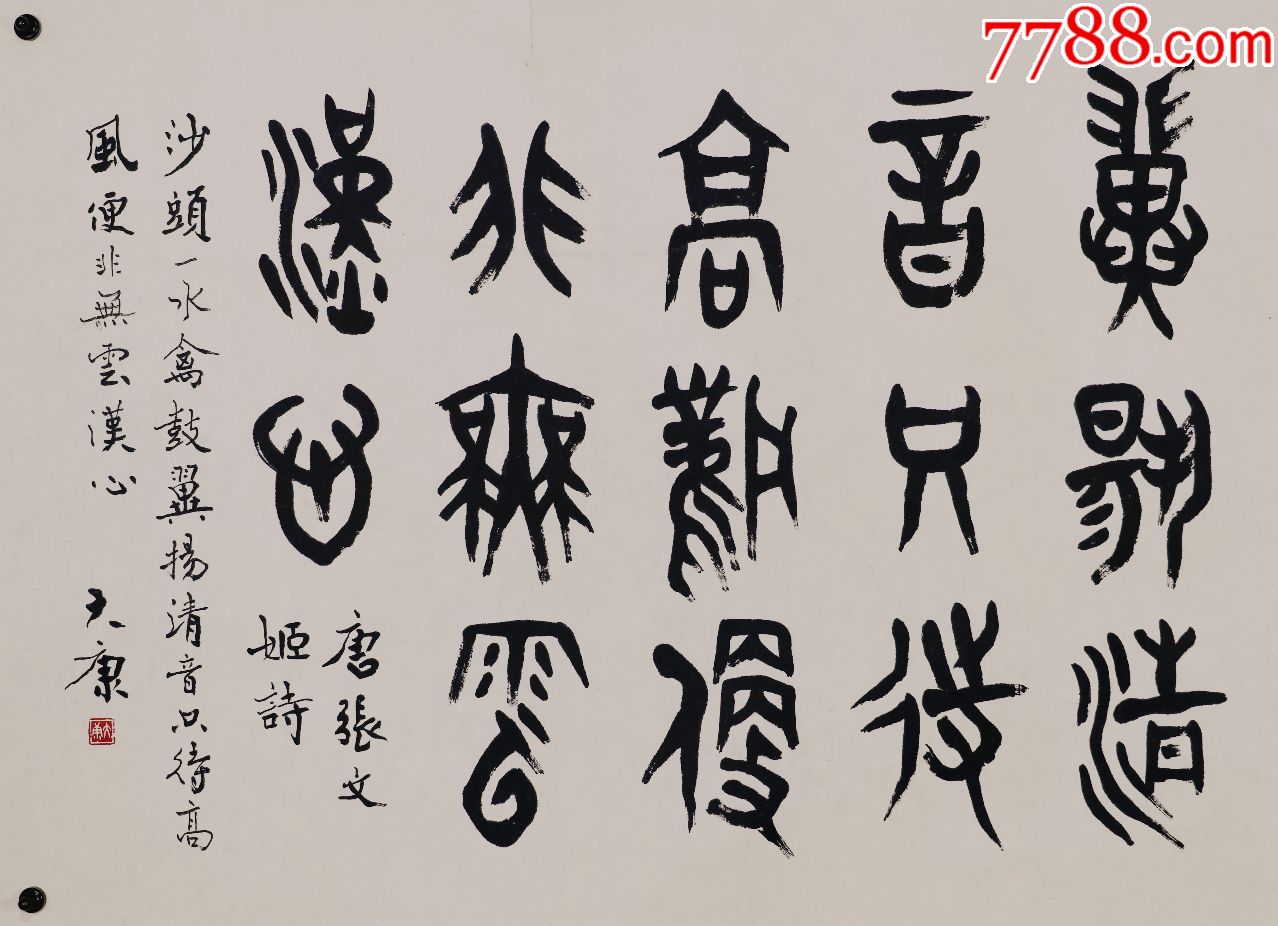 7788.com
翼揚清
音只待
高風便
非無雲
漢心
唐張文
姬詩
沙頭一水禽鼓翼揚清音只待高
風便非無雲漢心
康